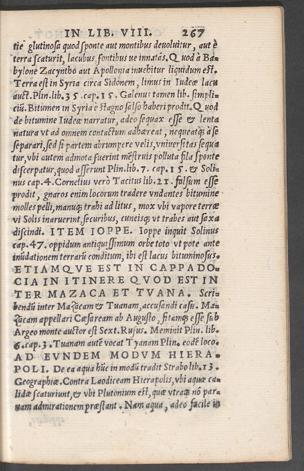 IN LIB. VIII. 267
tie glutinosa quod sponte aut montibus deuoluitur, aut è
terra scaturit, lacubus, fontibus ue innatãs. Quod à Ba-
bylone Zacyntho aut Apollonia inuehitur liquidum est.
Terra est in Syria circa Sidonem, limus in Iudeæ lacu
auct. Plin. lib. 35. cap. 15. Galenus tamen lib. simpli-
ciũ. Bitumen in Syriæ è stagno salso haberi prodit. Quod
de bitumine Iudeæ narratur, adeo sequax esse & lenta
natura vt ad omnem contactum adhæreat, nequeatq; à se
separari, sed si partem abrumpere velis, vniuersitas sequa
tur, vbi autem admota fuerint mẽstruis polluta fila sponte
discerpatur, quod asserunt Plin. lib. 7. cap. 15. & Soli-
nus cap. 4. Cornelius verò Tacitus lib. 21. falsum esse
prodit, gnaros enim locorum tradere vndantes bitumine
molles pelli, manuq; trahi ad litus, mox vbi vapore terræ
vi Solis inaruerint, securibus, cuneisq; vt trabes aut saxa
discindi. ITEM IOPPE. Ioppe inquit Solinus
cap. 47. oppidum antiquissimum orbe toto vt pote ante
inũdationem terrarũ conditum, ibi est lacus bituminosus.
ETIAMQVE EST IN CAPPADO-
CIA IN ITINERE QVOD EST IN
TER MAZACA ET TVANA. Scri-
bendũ inter Mazacam & Tuanam, accusandi casu. Ma-
zacam appellari Cæsaream ab Augusto, sitamq; esse sub
Argeo monte auctor est Sext. Rufus. Meminit Plin. lib.
6. cap. 3. Tuanam autẽ vocat Tyanam Plin. eodẽ loco.
AD EVNDEM MODVM HIERA-
POLI. De ea aqua hũc in modũ tradit Strabo lib. 13.
Geographiæ. Contra Laodiceam Hierapolis, vbi aquæ ca-
lidæ scaturiunt, & vbi Plutonium est, quæ vtraq; nõ par-
uam admirationem præstant. Nam aqua, adeo facile in